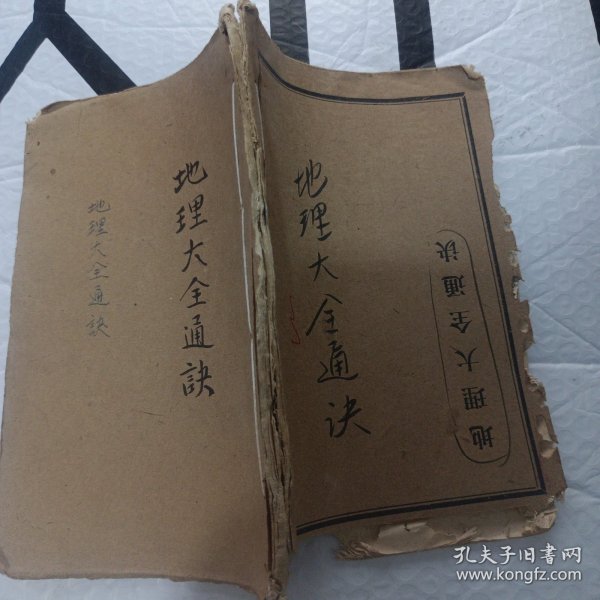 地理大全通诀
地理大全通诀
地理大全通訣
地理大全通訣
孔夫子旧書网
www.kongfz.com